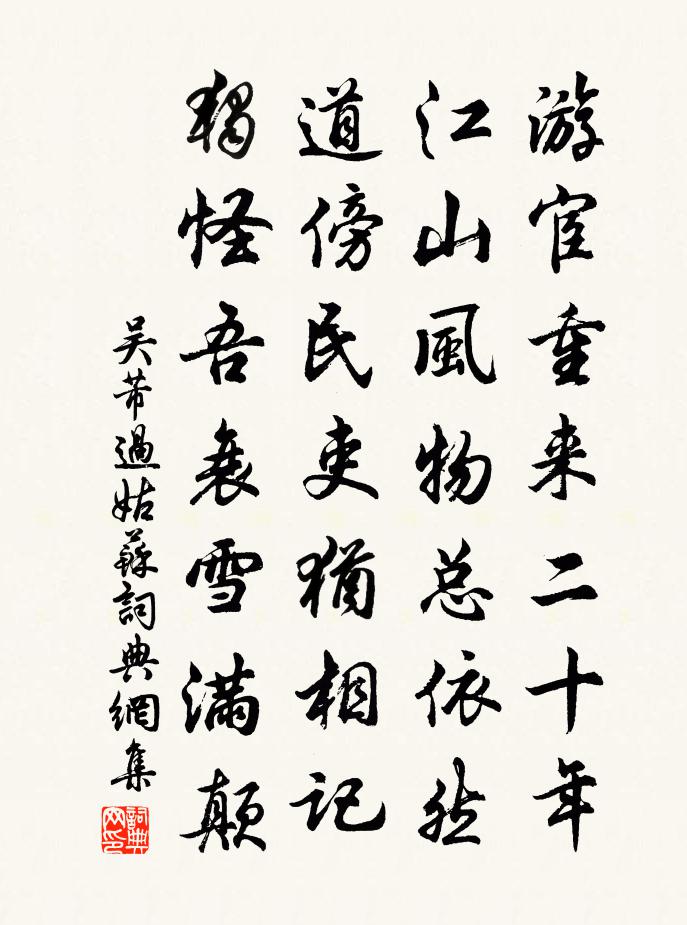 游宦重来二十年
江山風物总依然
道傍民吏猶相記
獨怪吾衰雪满颠
吴芾過姑蘇詞典網集
詞典
网印